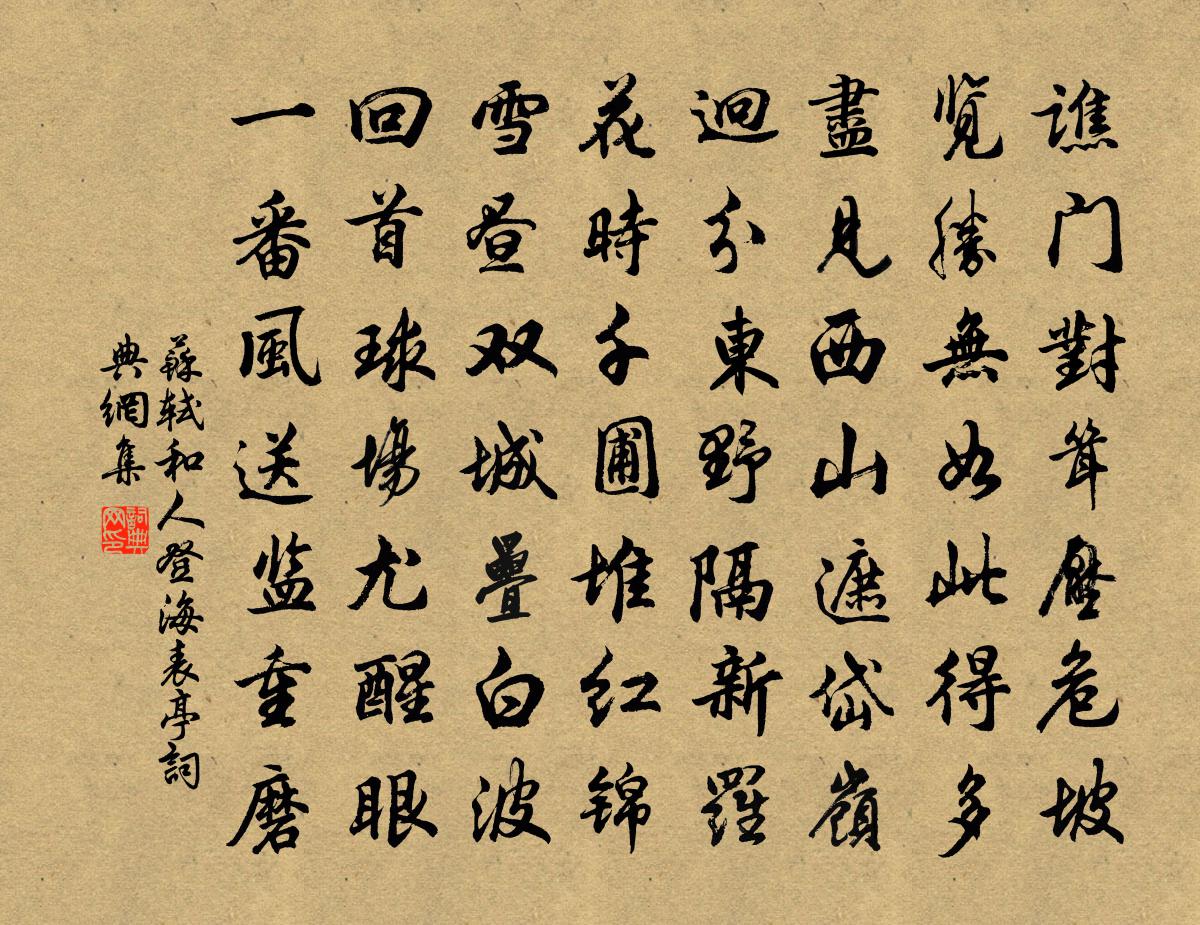 譙门對耸壓危坡
览勝無如此得多
盡見西山遮岱嶺
迴分東野隔新羅
花時千圃堆红锦
雪昼双城疊白波
回首球場尤醒眼
一番風送监重磨
蘇轼和人登海表亭詞
典網集
詞典
网印